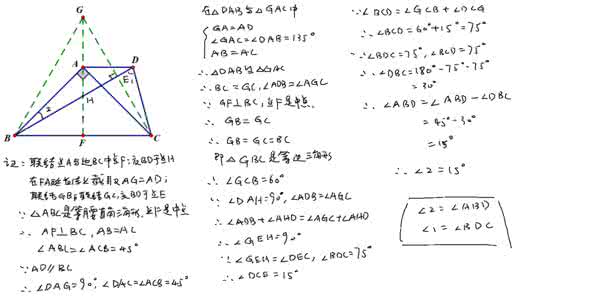 G
A
D
E
1
2
H
B
F
C
证：联结点A与边BC中点F；交BD于点H
在FA延长线上截取AG=AD；
联结GB，联结GC，交BD于点E
∵ △ABC是等腰直角三角形，点F是中点
∴ AF⊥BC，AB=AC
∠ABC=∠ACB=45°
∵ AD∥BC
∴ ∠DAG=90°，∠DAC=∠ACB=45°
在△DAB与△GAC中
GA=AD
∠GAC=∠DAB=135°
AB=AC
∴ △DAB≌△GAC
∴ BC=GC，∠ADB=∠AGC
∵ GF⊥BC，点F是中点
∴ GB=GC
∴ GB=GC=BC
即△GBC是等边三角形
∴ ∠GCB=60°
∵ ∠DAH=90°，∠ADB=∠AGC
∴ ∠ADB+∠AHD=∠AGC+∠AHD
∴ ∠GEH=90°
∵ ∠GEH=∠DEC，∠BDC=75°
∴ ∠DCE=15°
∵ ∠BCD=∠GCB+∠DCG
∴ ∠BCD=60°+15°=75°
∵ ∠BDC=75°，∠BCD=75°
∴ ∠DBC=180°-75°-75°
=30°
∴ ∠ABD=∠ABD-∠DBC
=45°-30°
=15°
∴ ∠2=15°
∠2=∠ABD
∠1=∠BDC